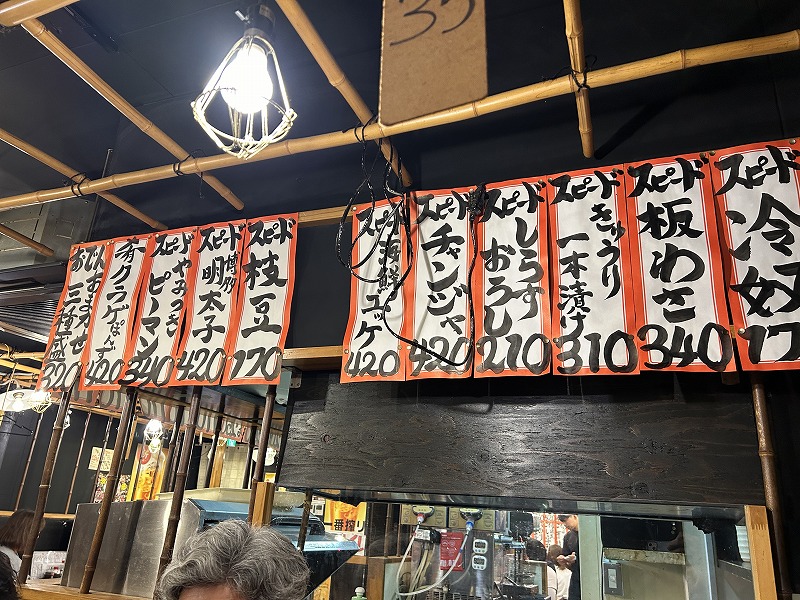 35
スピード
冷奴
スピード
板わさ
340
スピード
きゅうり
一本漬け
310
スピード
しらす
おろし
210
スピード
チャンジャ
420
スピード
海鮮
ユッケ
420
スピード
枝豆
170
スピード
博多
明太子
420
スピード
やみつき
ピーマン
340
クラゲ
420
おでん
おまかせ
三種盛
320
一番搾り